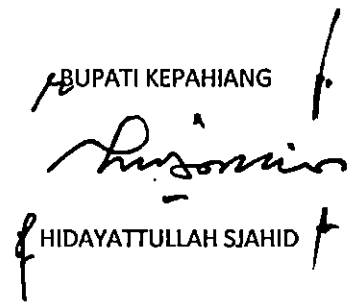 BUPATI KEPAHIANG
HIDAYATTULLAH SJAHID